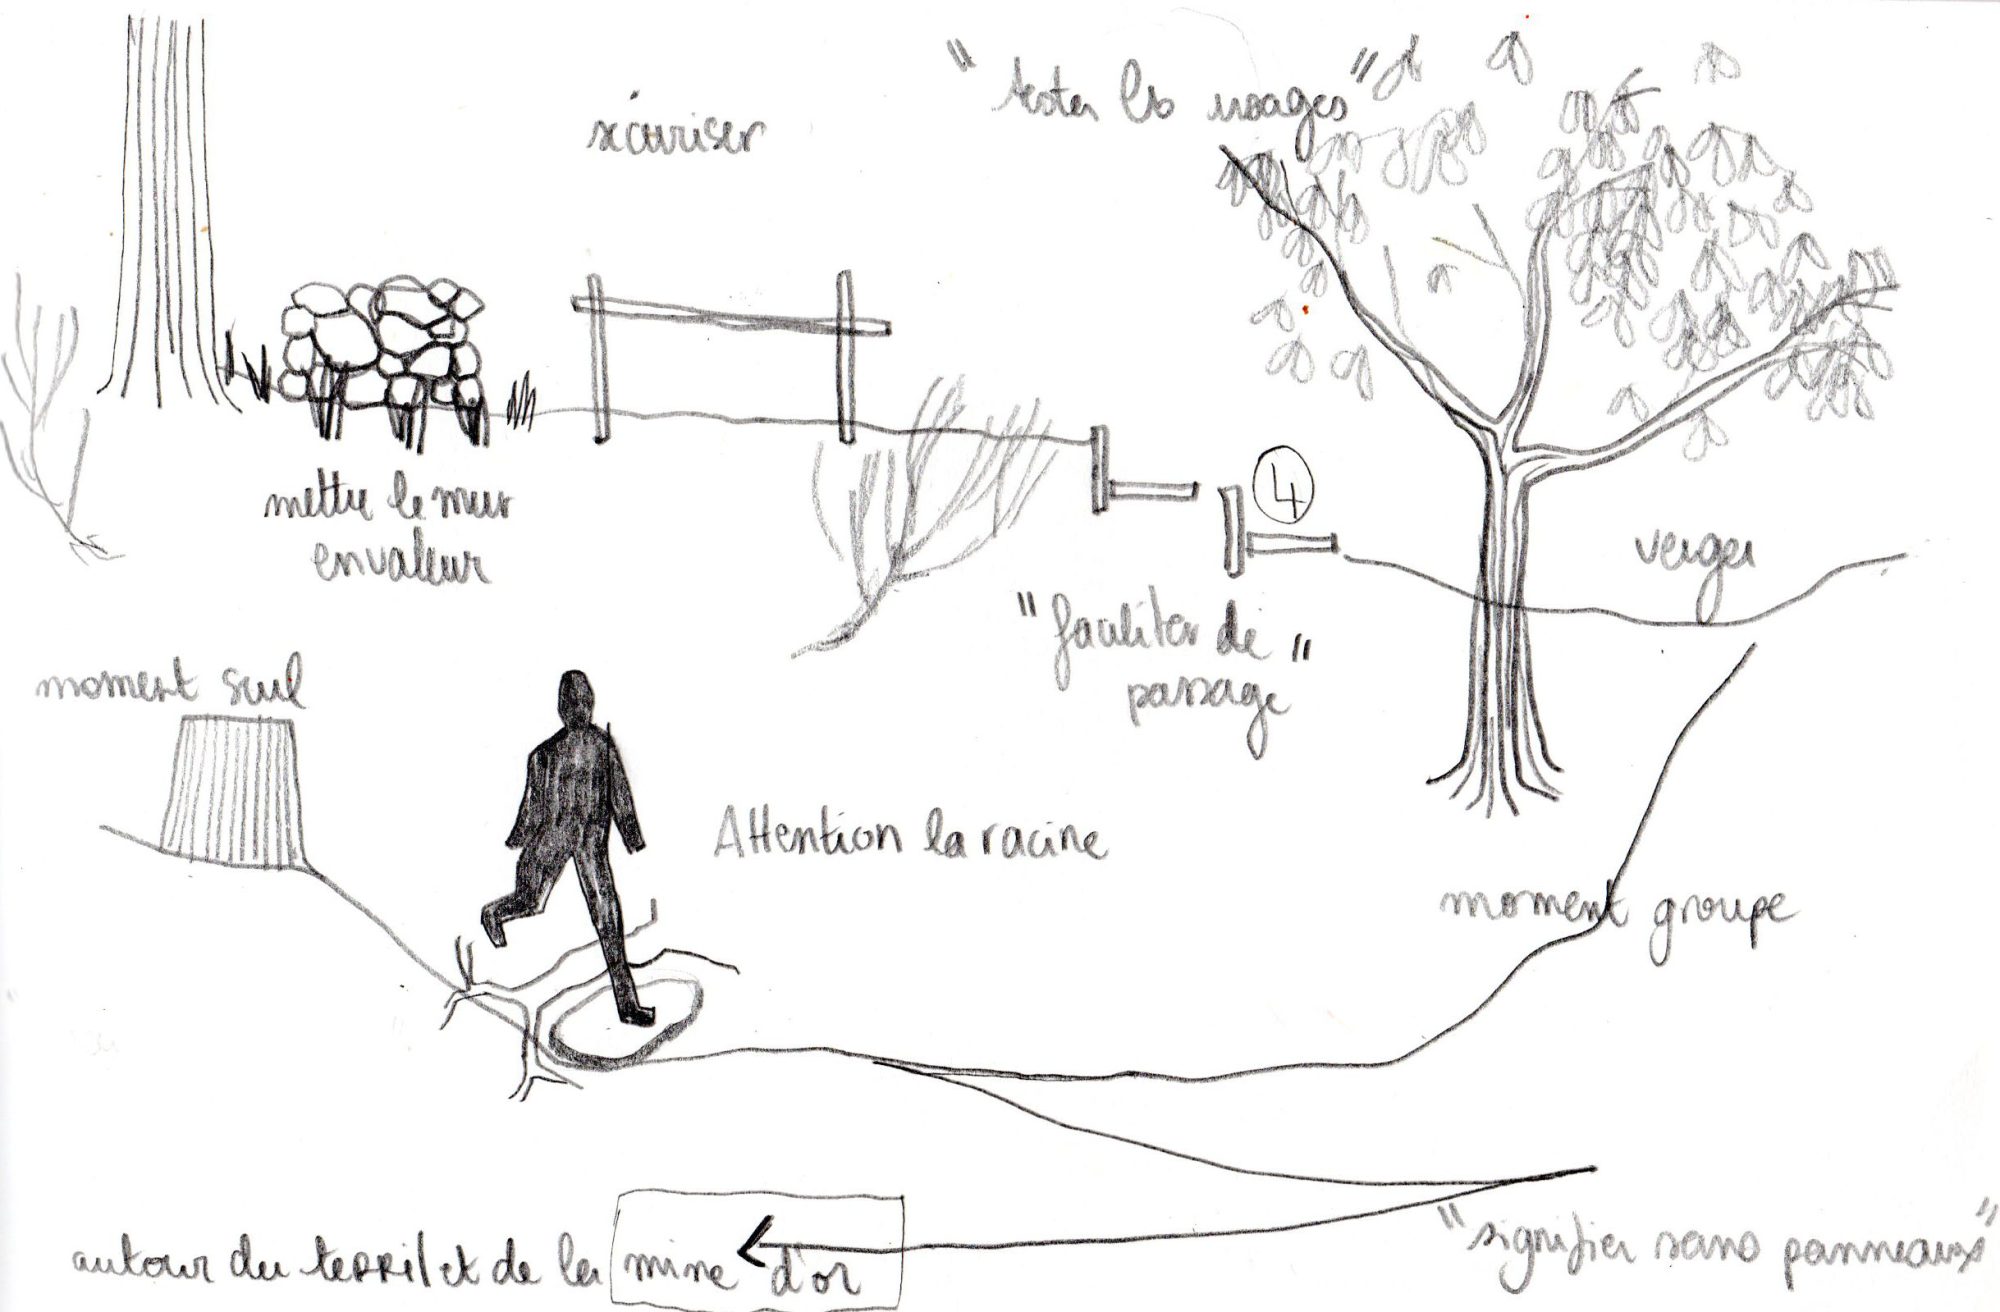 "tester les usages"
sécuriser
mettre le mur
en valeur
4
verger
"faciliter de
passage"
moment seul
Attention la racine
moment groupe
"signifier sans panneaux"
autour du terril et de la mine d'or